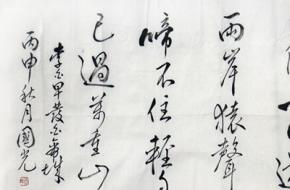 一
兩岸猿聲
啼不住輕舟
已過萬重山
李白早發白帝城
丙申秋月國光